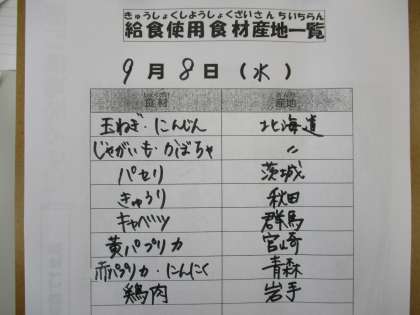 きゅうしょくしようしょくざいさんちいちらん
給食使用食材産地一覧
9月8日(水)
しょくざい さんち
食材 産地
玉ねぎ・にんじん 北海道
じゃがいも・かぼちゃ 〃
パセリ 茨城
きゅうり 秋田
キャベツ 群馬
黄パプリカ 宮崎
赤パプリカ・にんにく 青森
鶏肉 岩手